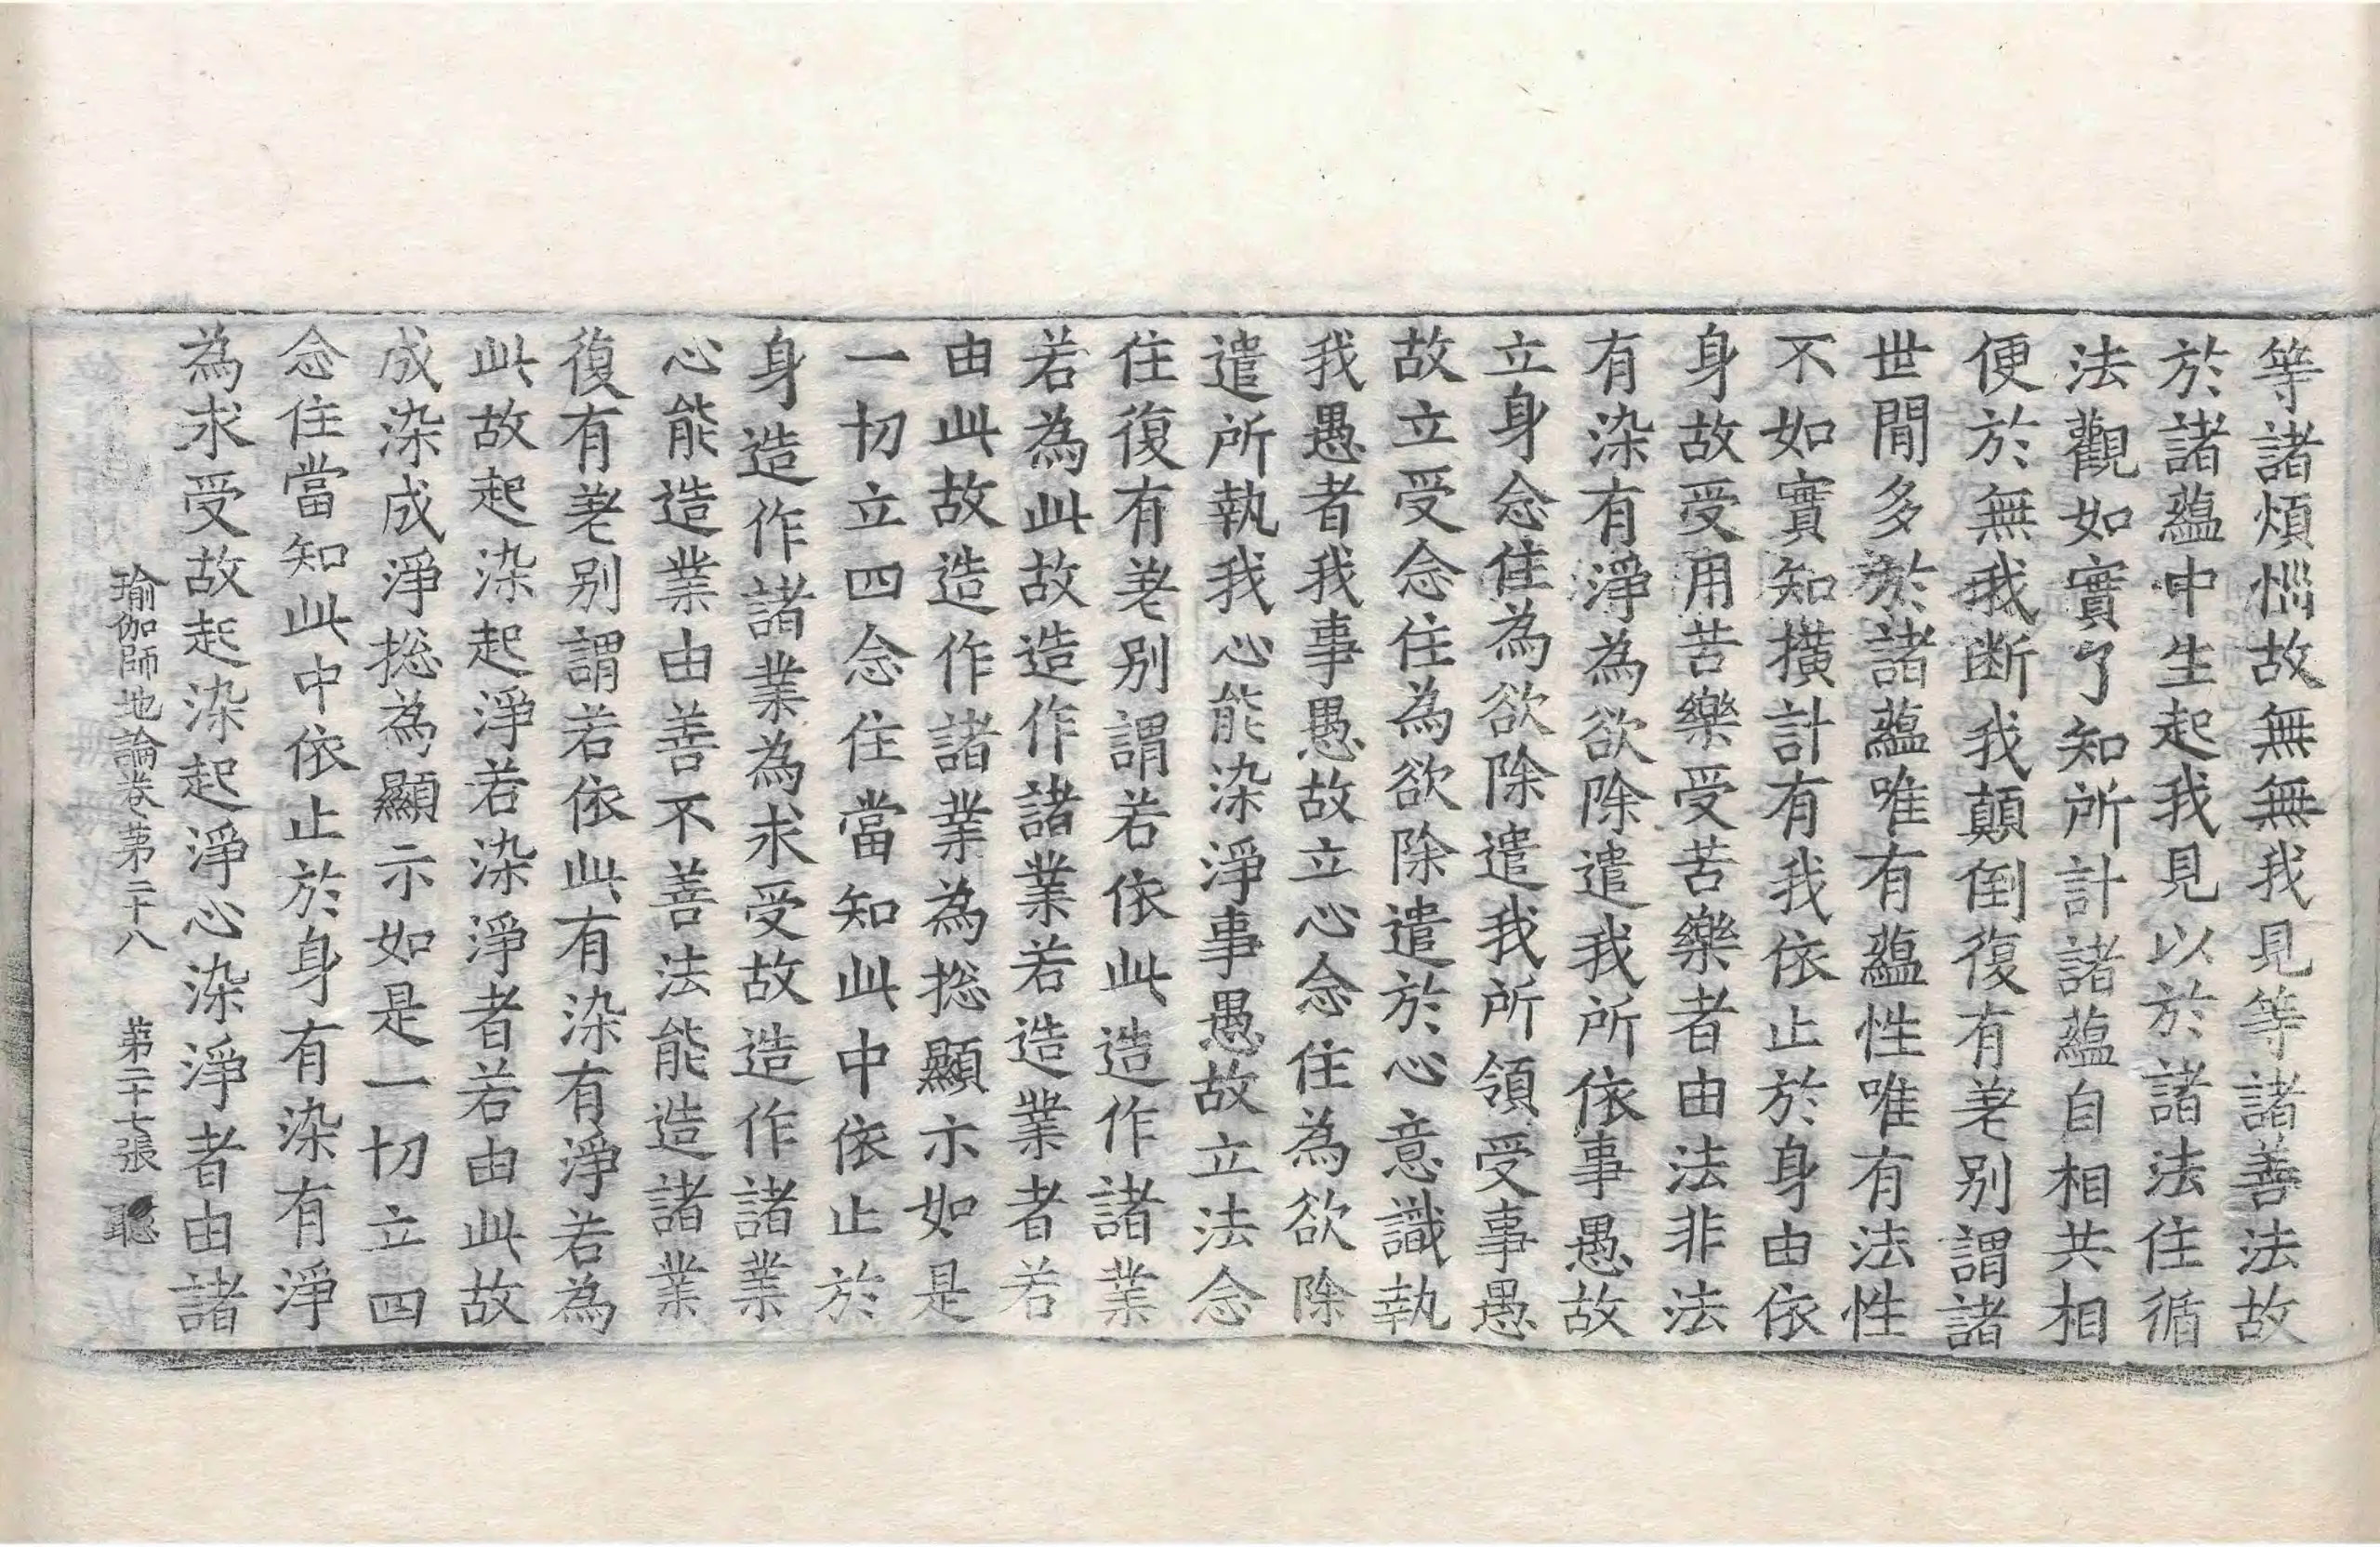 等諸煩惱故無無我見等諸善法故
於諸蘊中生起我見以於諸法住循
法觀如實了知所計諸蘊自相共相
便於無我斷我顛倒復有差別謂諸
世間多於諸蘊唯有蘊性唯有法性
不如實知橫計有我依止於身由依
身故受用苦樂受苦樂者由法非法
有染有淨為欲除遣我所依事愚故
立身念住為欲除遣我所領受事愚
故立受念住為欲除遣於心意識執
我愚者我事愚故立心念住為欲除
遣所執我心能染淨事愚故立法念
住復有差別謂若依此造作諸業
若為此故造作諸業若造業者若
由此故造作諸業為揔顯示如是
一切立四念住當知此中依止於
身造作諸業為求受故造作諸業
心能造業由善不善法能造諸業
復有差別謂若依此有染有淨若為
此故起染起淨若染淨者若由此故
成染成淨揔為顯示如是一切立四
念住當知此中依止於身有染有淨
為求受故起染起淨心染淨者由諸
瑜伽師地論卷第二十八 第二十七張 聦